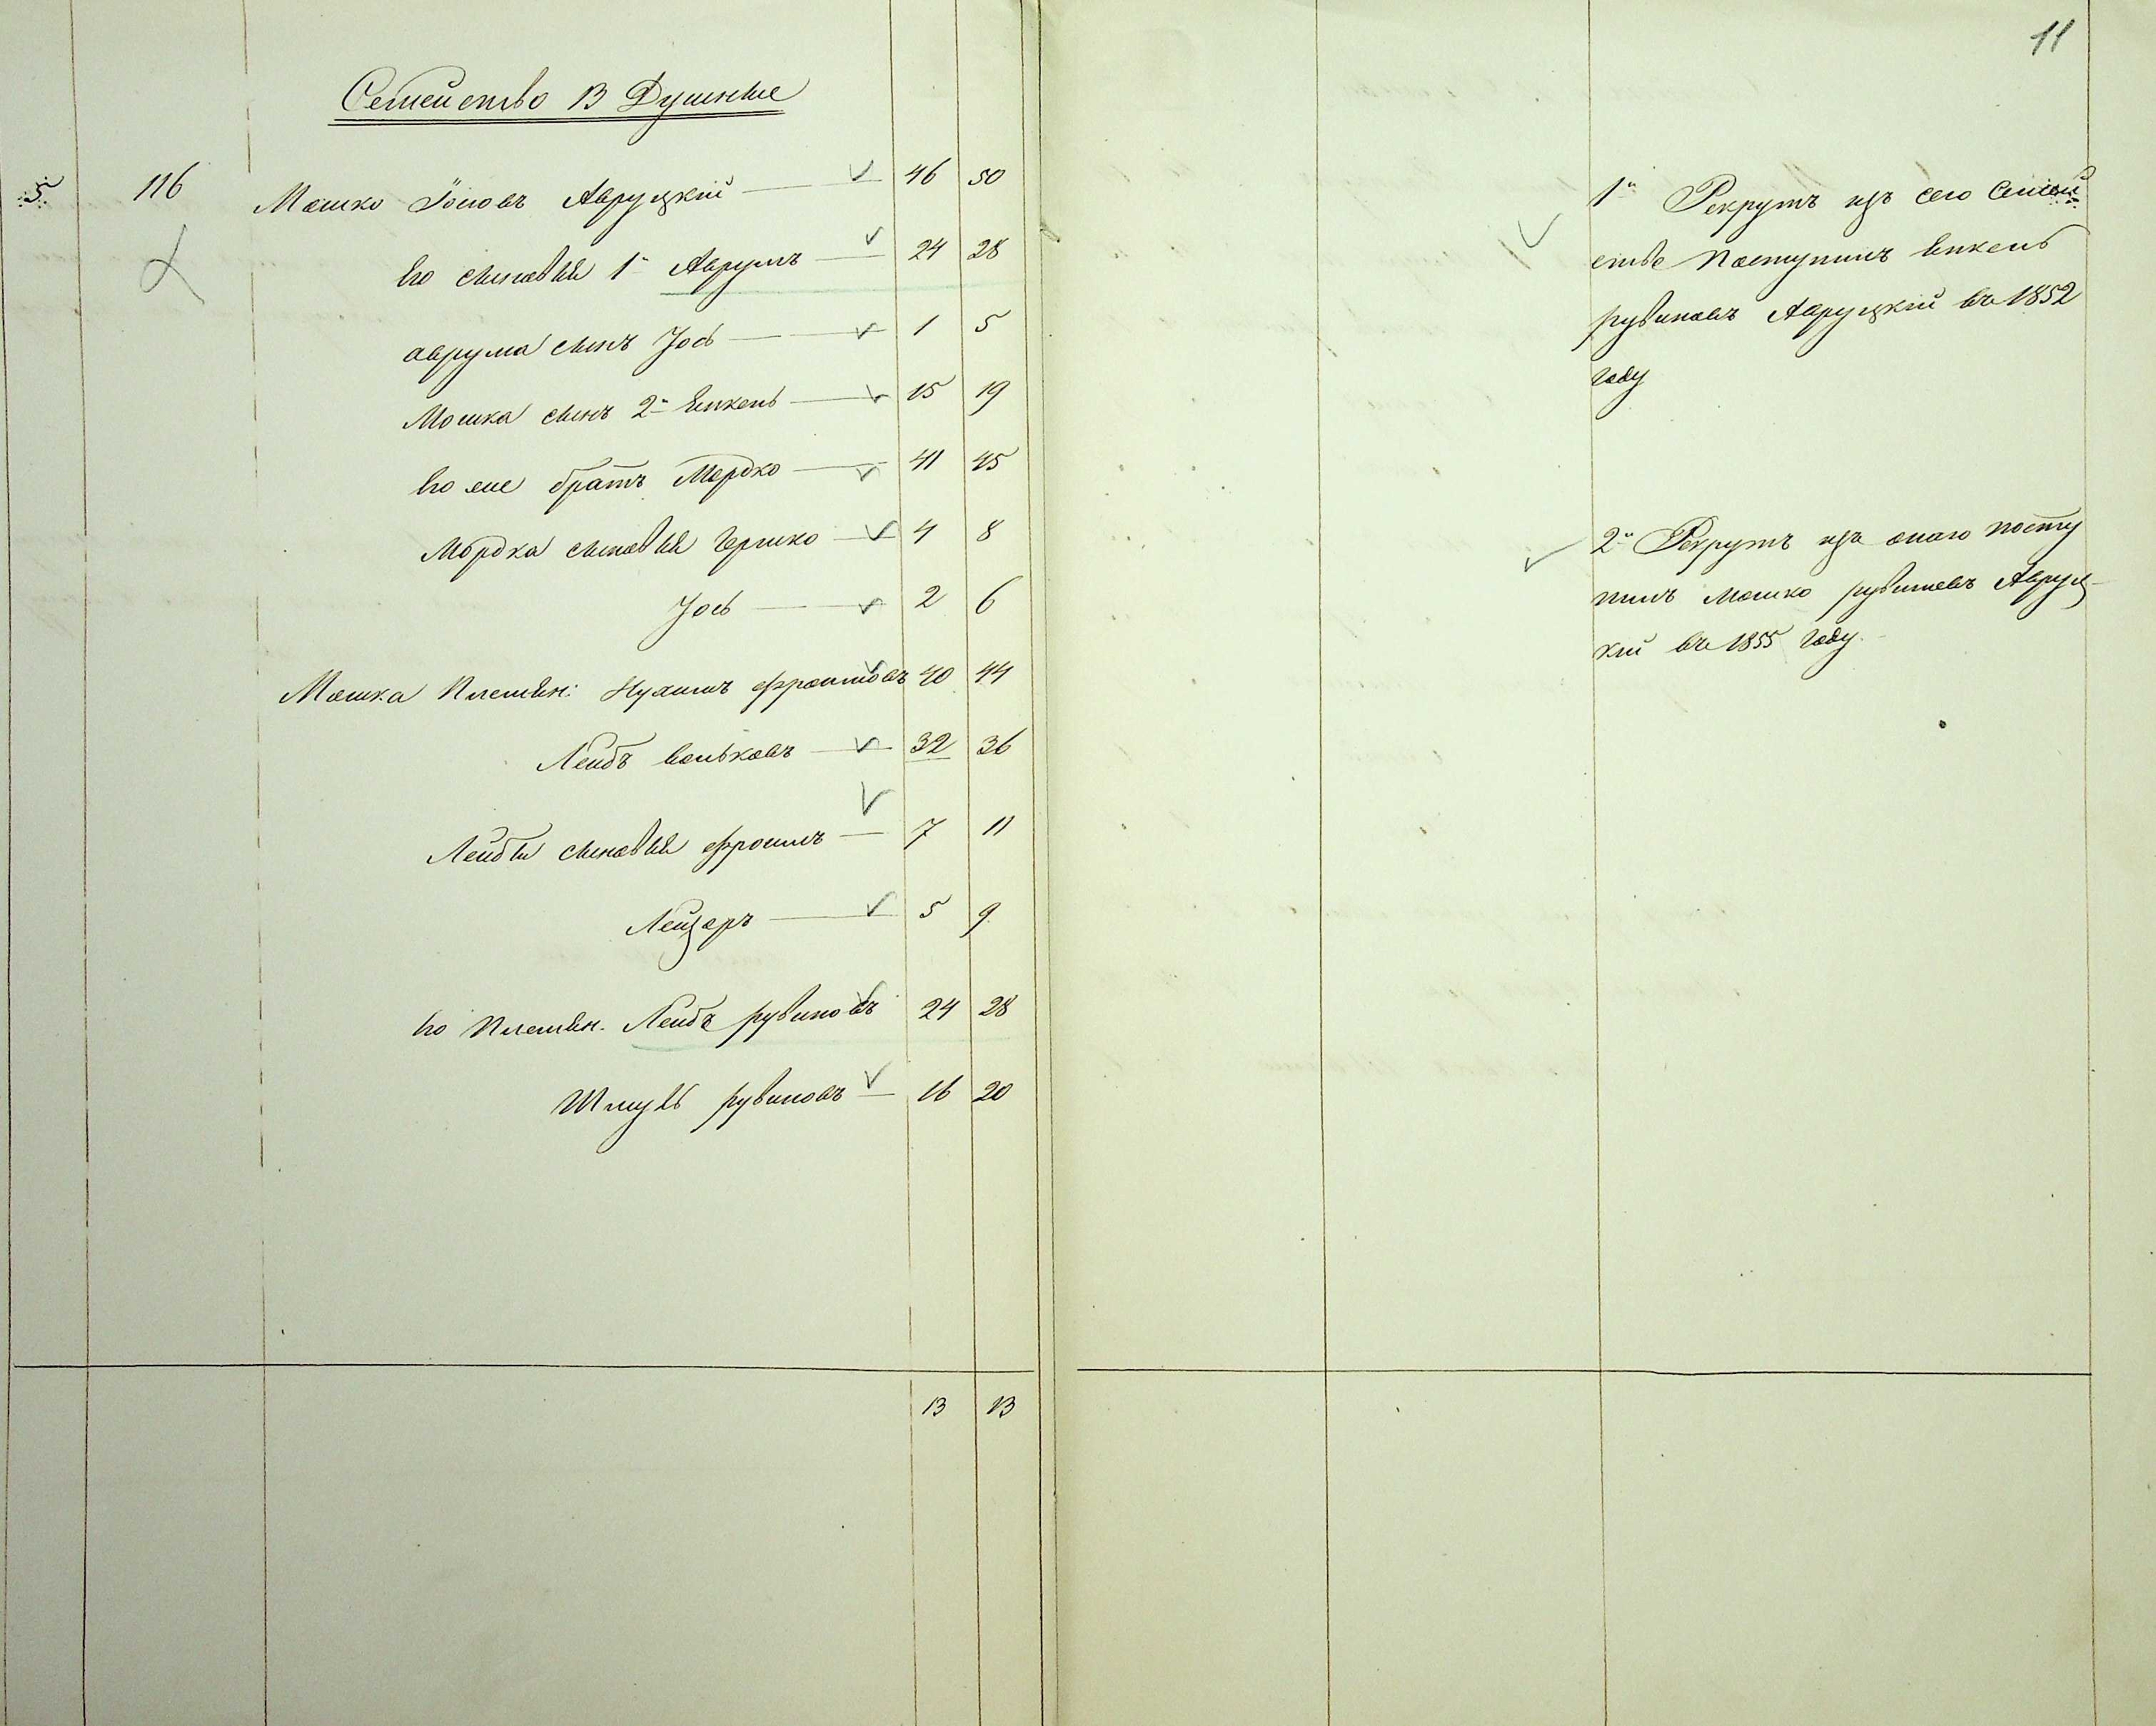 11
Семейство 13 Душное
5 116 Мошко Iосiовъ Авруцкий 46 50
Его сыновья 1й Аврумъ 24 28
аврума сынъ Iось 1 5
Мошка сынъ 2й Янкель 15 19
Его же братъ Мордко 41 45
Мордка сыновья Гершко 4 8
Iось 2 6
Мошка Племян: Нухимъ фроимовъ 40 44
Лейбъ Вольковъ 32 36
Лейбы сыновья фроимъ 7 11
Лейзеръ 5 9
Его Племян. Лейбъ рувиновъ 24 28
Шмуль рувиновъ 16 20
13 13
1й Рекрутъ изъ сего Семей
ства Поступилъ Янкель
рувиновъ Авруцкий въ 1852
году
2й Рекрутъ изъ онаго посту
пилъ Мошко рувиновъ Авруц-
кий въ 1855 году.